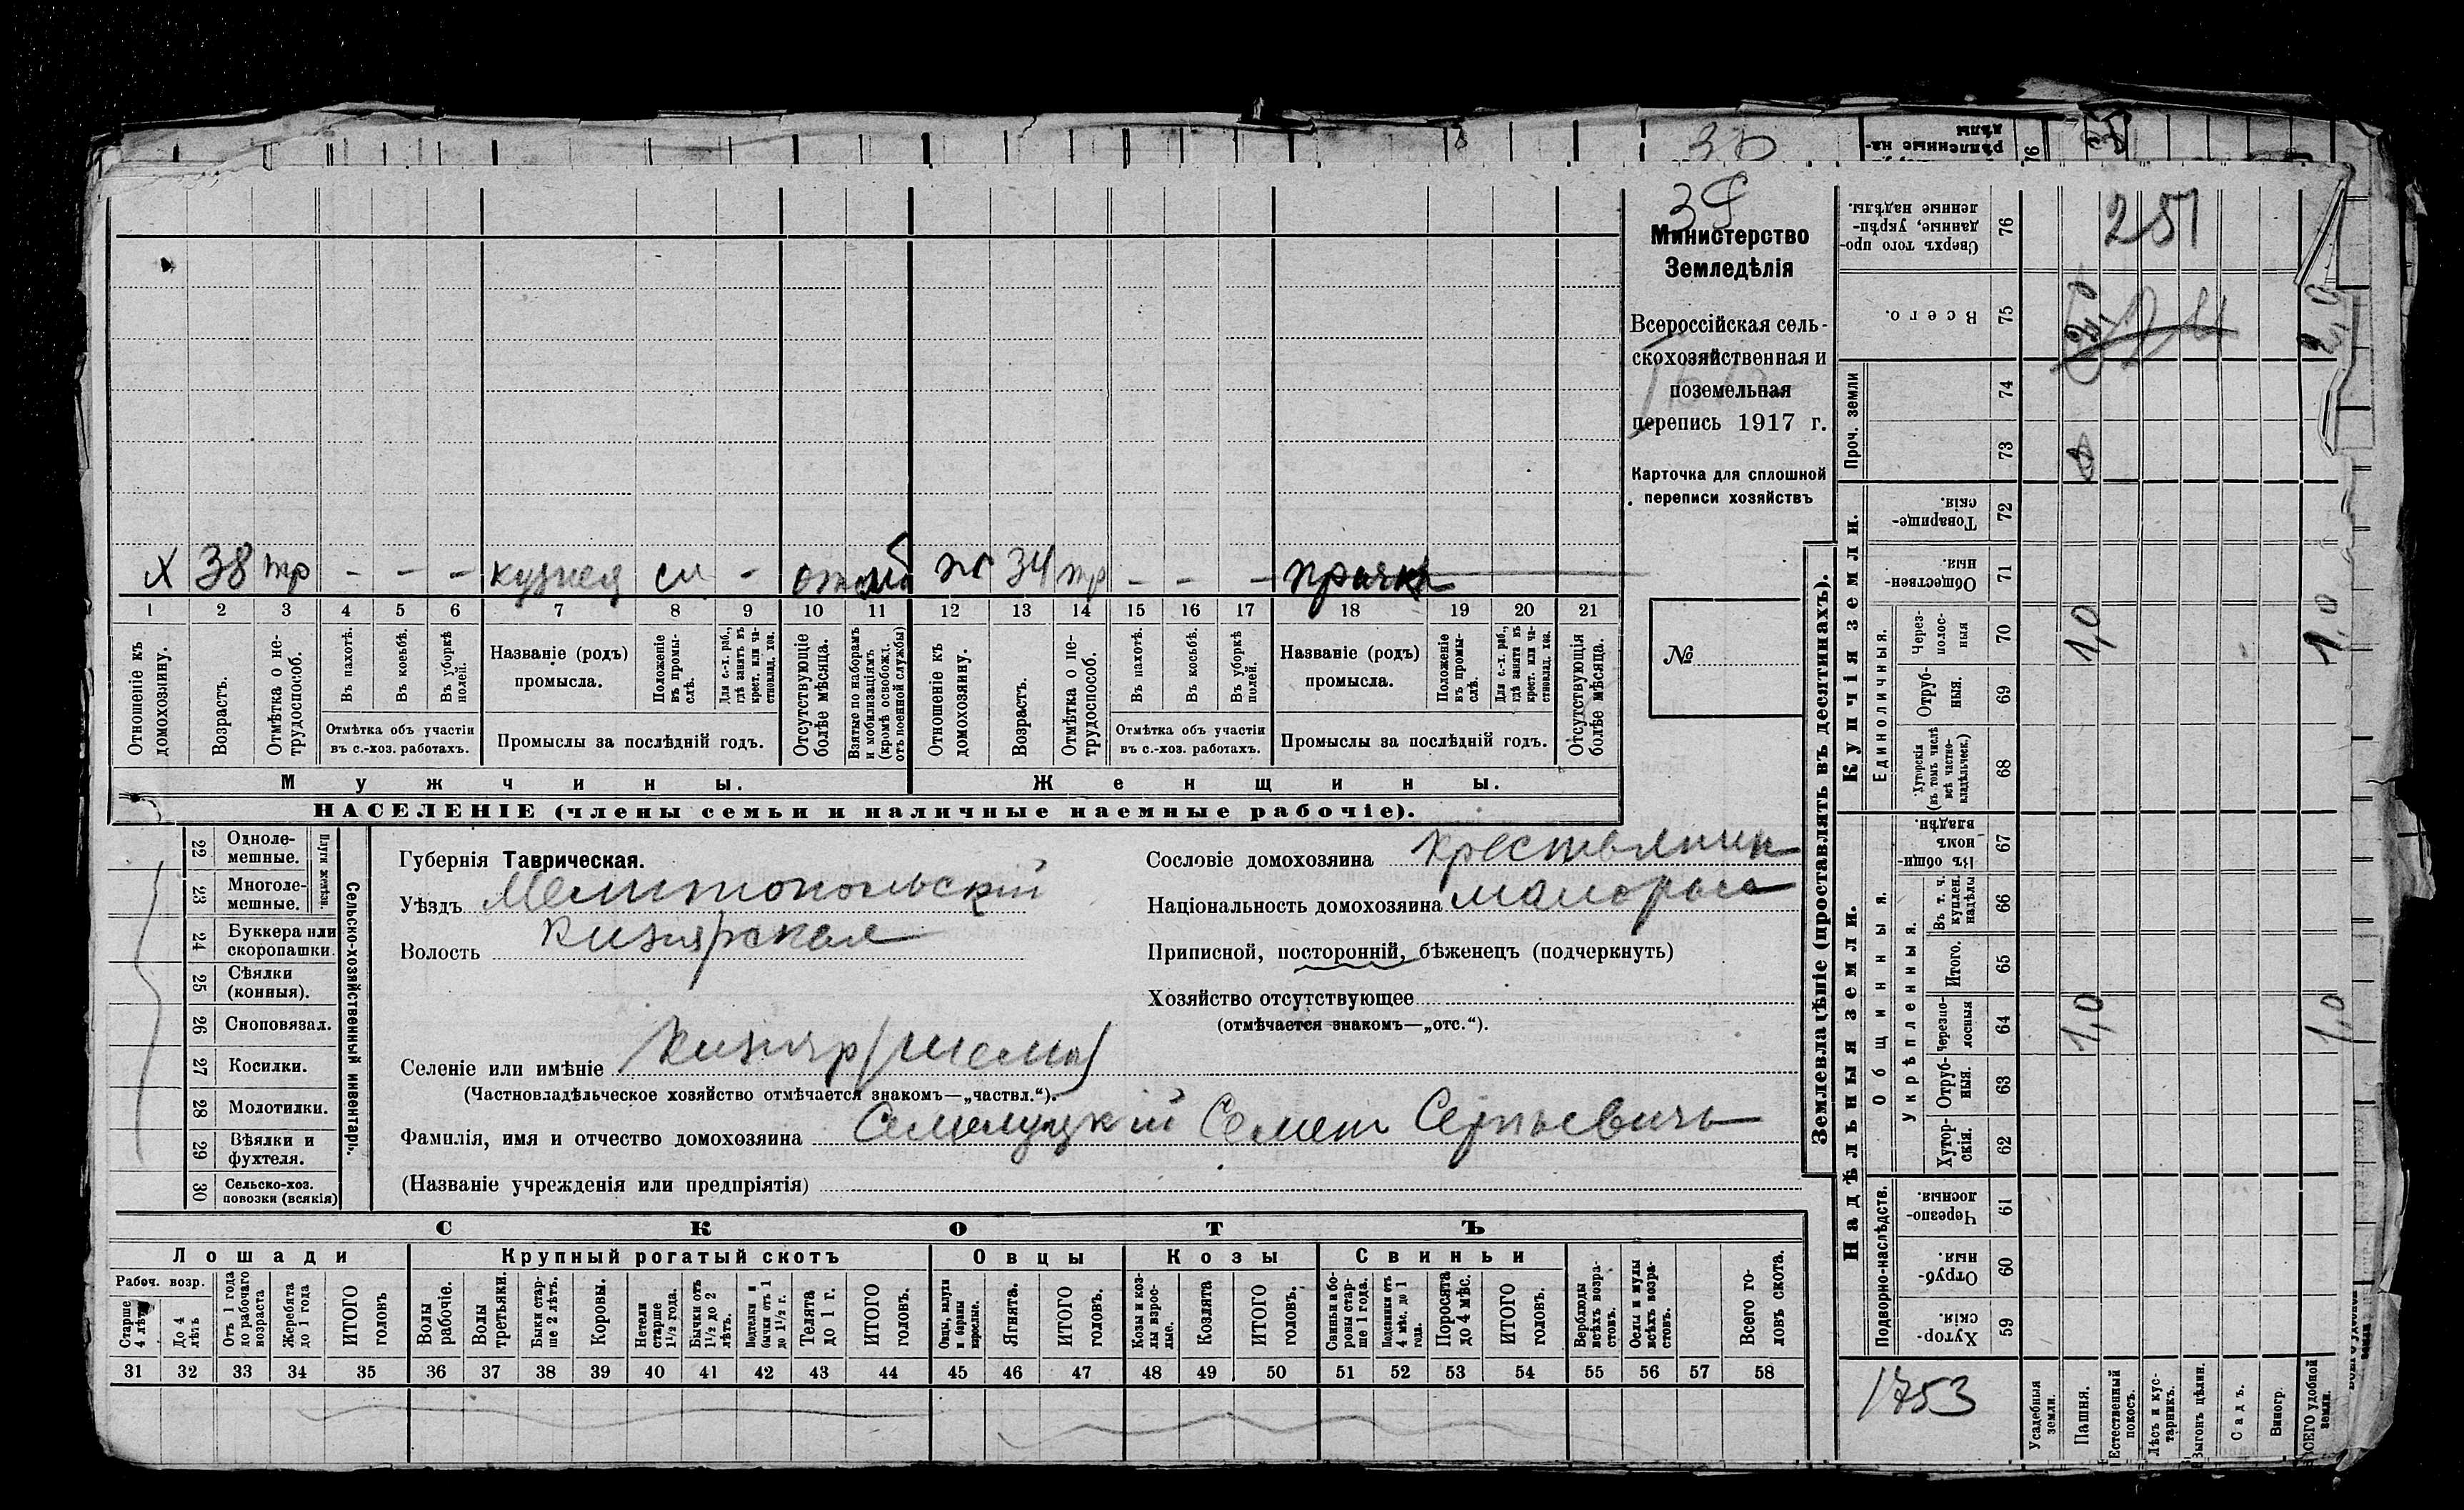 30
39
Министерство
Земледѣлія
Всероссійская сель-
скохозяйственная и
поземельная
перепись 1917 г.
Карточка для сплошной
переписи хозяйствъ
№
х 38 тр - - - кузнец сл - ж 34 тр - - - прачка
1 2 3 4 5 6 7 8 9 10 11 12 13 14 15 16 17 18 19 20 21
Отношеніе къ домохозяину.
Возрастъ.
Отмѣтка о не-трудоспособ.
Въ пахотѣ.
Въ косьбѣ.
Въ уборкѣ полей.
Отмѣтка объ участіи
въ с.-хоз. работахъ.
Названіе (родъ)
промысла.
Положеніе въ промы-слѣ.
Для с.-х. раб., гдѣ занятъ въ крест. или ча-стновлад. хоз.
Промыслы за послѣдній годъ.
Отсутствующіе болѣе мѣсяца.
Взятые по наборамъ и мобилизаціямъ (кромѣ освобожд. отъ военной службы)
Отношеніе къ домохозяину.
Возрастъ.
Отмѣтка о не-трудоспособ.
Въ пахотѣ.
Въ косьбѣ.
Въ уборкѣ полей.
Отмѣтка объ участіи
въ с.-хоз. работахъ.
Названіе (родъ)
промысла.
Положеніе въ промы-слѣ.
Для с.-х. раб., гдѣ занята въ крест. или ча-стновлад. хоз.
Промыслы за послѣдній годъ.
Отсутствующія болѣе мѣсяца.
Мужчины. Женщины.
НАСЕЛЕНІЕ (члены семьи и наличные наемные рабочіе).
22 Одноле-мешные.
23 Многоле-мешные.
Плуги желѣзн.
24 Буккера или скоропашки.
25 Сѣялки (конныя).
26 Сноповязал.
27 Косилки.
28 Молотилки.
29 Вѣялки и фухтеля.
30 Сельско-хоз. повозки (всякія)
Сельско-хозяйственный инвентарь.
Губернія Таврическая.
Уѣздъ Мелитопольскій
Волость Кизиярская
Селеніе или имѣніе Кизияр
(Частновладѣльческое хозяйство отмѣчается знакомъ—„частвл.“).
Сословіе домохозяина крестьянин
Національность домохозяина малоросс
Приписной, посторонній, бѣженецъ (подчеркнуть)
Хозяйство отсутствующее
(отмѣчается знакомъ—„отс.“).
Фамилія, имя и отчество домохозяина Семилуцкій Семен Сергѣевичь
(Названіе учрежденія или предпріятія)
СКОТЪ
Лошади Крупный рогатый скотъ Овцы Козы Свиньи
Рабоч. возр.
Старше 4 лѣтъ
До 4 лѣтъ
Отъ 1 года до рабочаго возраста
Жеребята до 1 года
ИТОГО головъ
Волы рабочіе.
Волы третьяки.
Быки стар-ше 2 лѣтъ.
Коровы.
Нетели старше 1½ года.
Бычки отъ 1½ до 2 лѣтъ.
Подтелки и бычки отъ 1 до 1½ г.
Телята до 1 г.
ИТОГО головъ.
Овцы, валухи и бараны взрослые.
Ягнята.
ИТОГО головъ.
Козы и коз-лы взрос-лые.
Козлята
ИТОГО головъ.
Свиньи и бо-ровы стар-ше 1 года.
Подсвинки отъ 4 мѣс. до 1 года.
Поросята до 4 мѣс.
ИТОГО головъ.
Верблюды всѣхъ возра-стовъ.
Ослы и мулы всѣхъ возра-стовъ.
Всего го-ловъ скота.
31 32 33 34 35 36 37 38 39 40 41 42 43 44 45 46 47 48 49 50 51 52 53 54 55 56 57 58
Землевладѣніе (проставлять въ десятинахъ).
Сверхъ того про-данные, укрѣп-ленные надѣлы. 76 251
Всего. 75 2,0 2,0
Проч. земли
74
73
Купчія земли.
Товарище-скія. 72
Обществен-ныя. 71
Единоличныя.
Через-полос-ныя 70 1,0 1,0
Отруб-ныя. 69
Хуторскія (въ томъ числѣ всѣ частно-владѣльческ.) 68
Надѣльныя земли.
Общинныя.
Въ общин-номъ владѣн. 67
Въ т. ч. куплен. надѣлы 66
Укрѣпленныя.
Итого. 65
Черезпо-лосныя 64 1,0 1,0
Отруб-ныя. 63
Хутор-скія. 62
Подворно-наслѣдств.
Черезпо-лосныя 61
Отруб-ныя. 60
Хутор-скія 59
1753
Усадебныя земли.
Пашня.
Естественный покосъ.
Лѣсъ и кус-тарникъ.
Выгонъ цѣлин.
Садъ.
Виногр.
ВСЕГО удобной земли.